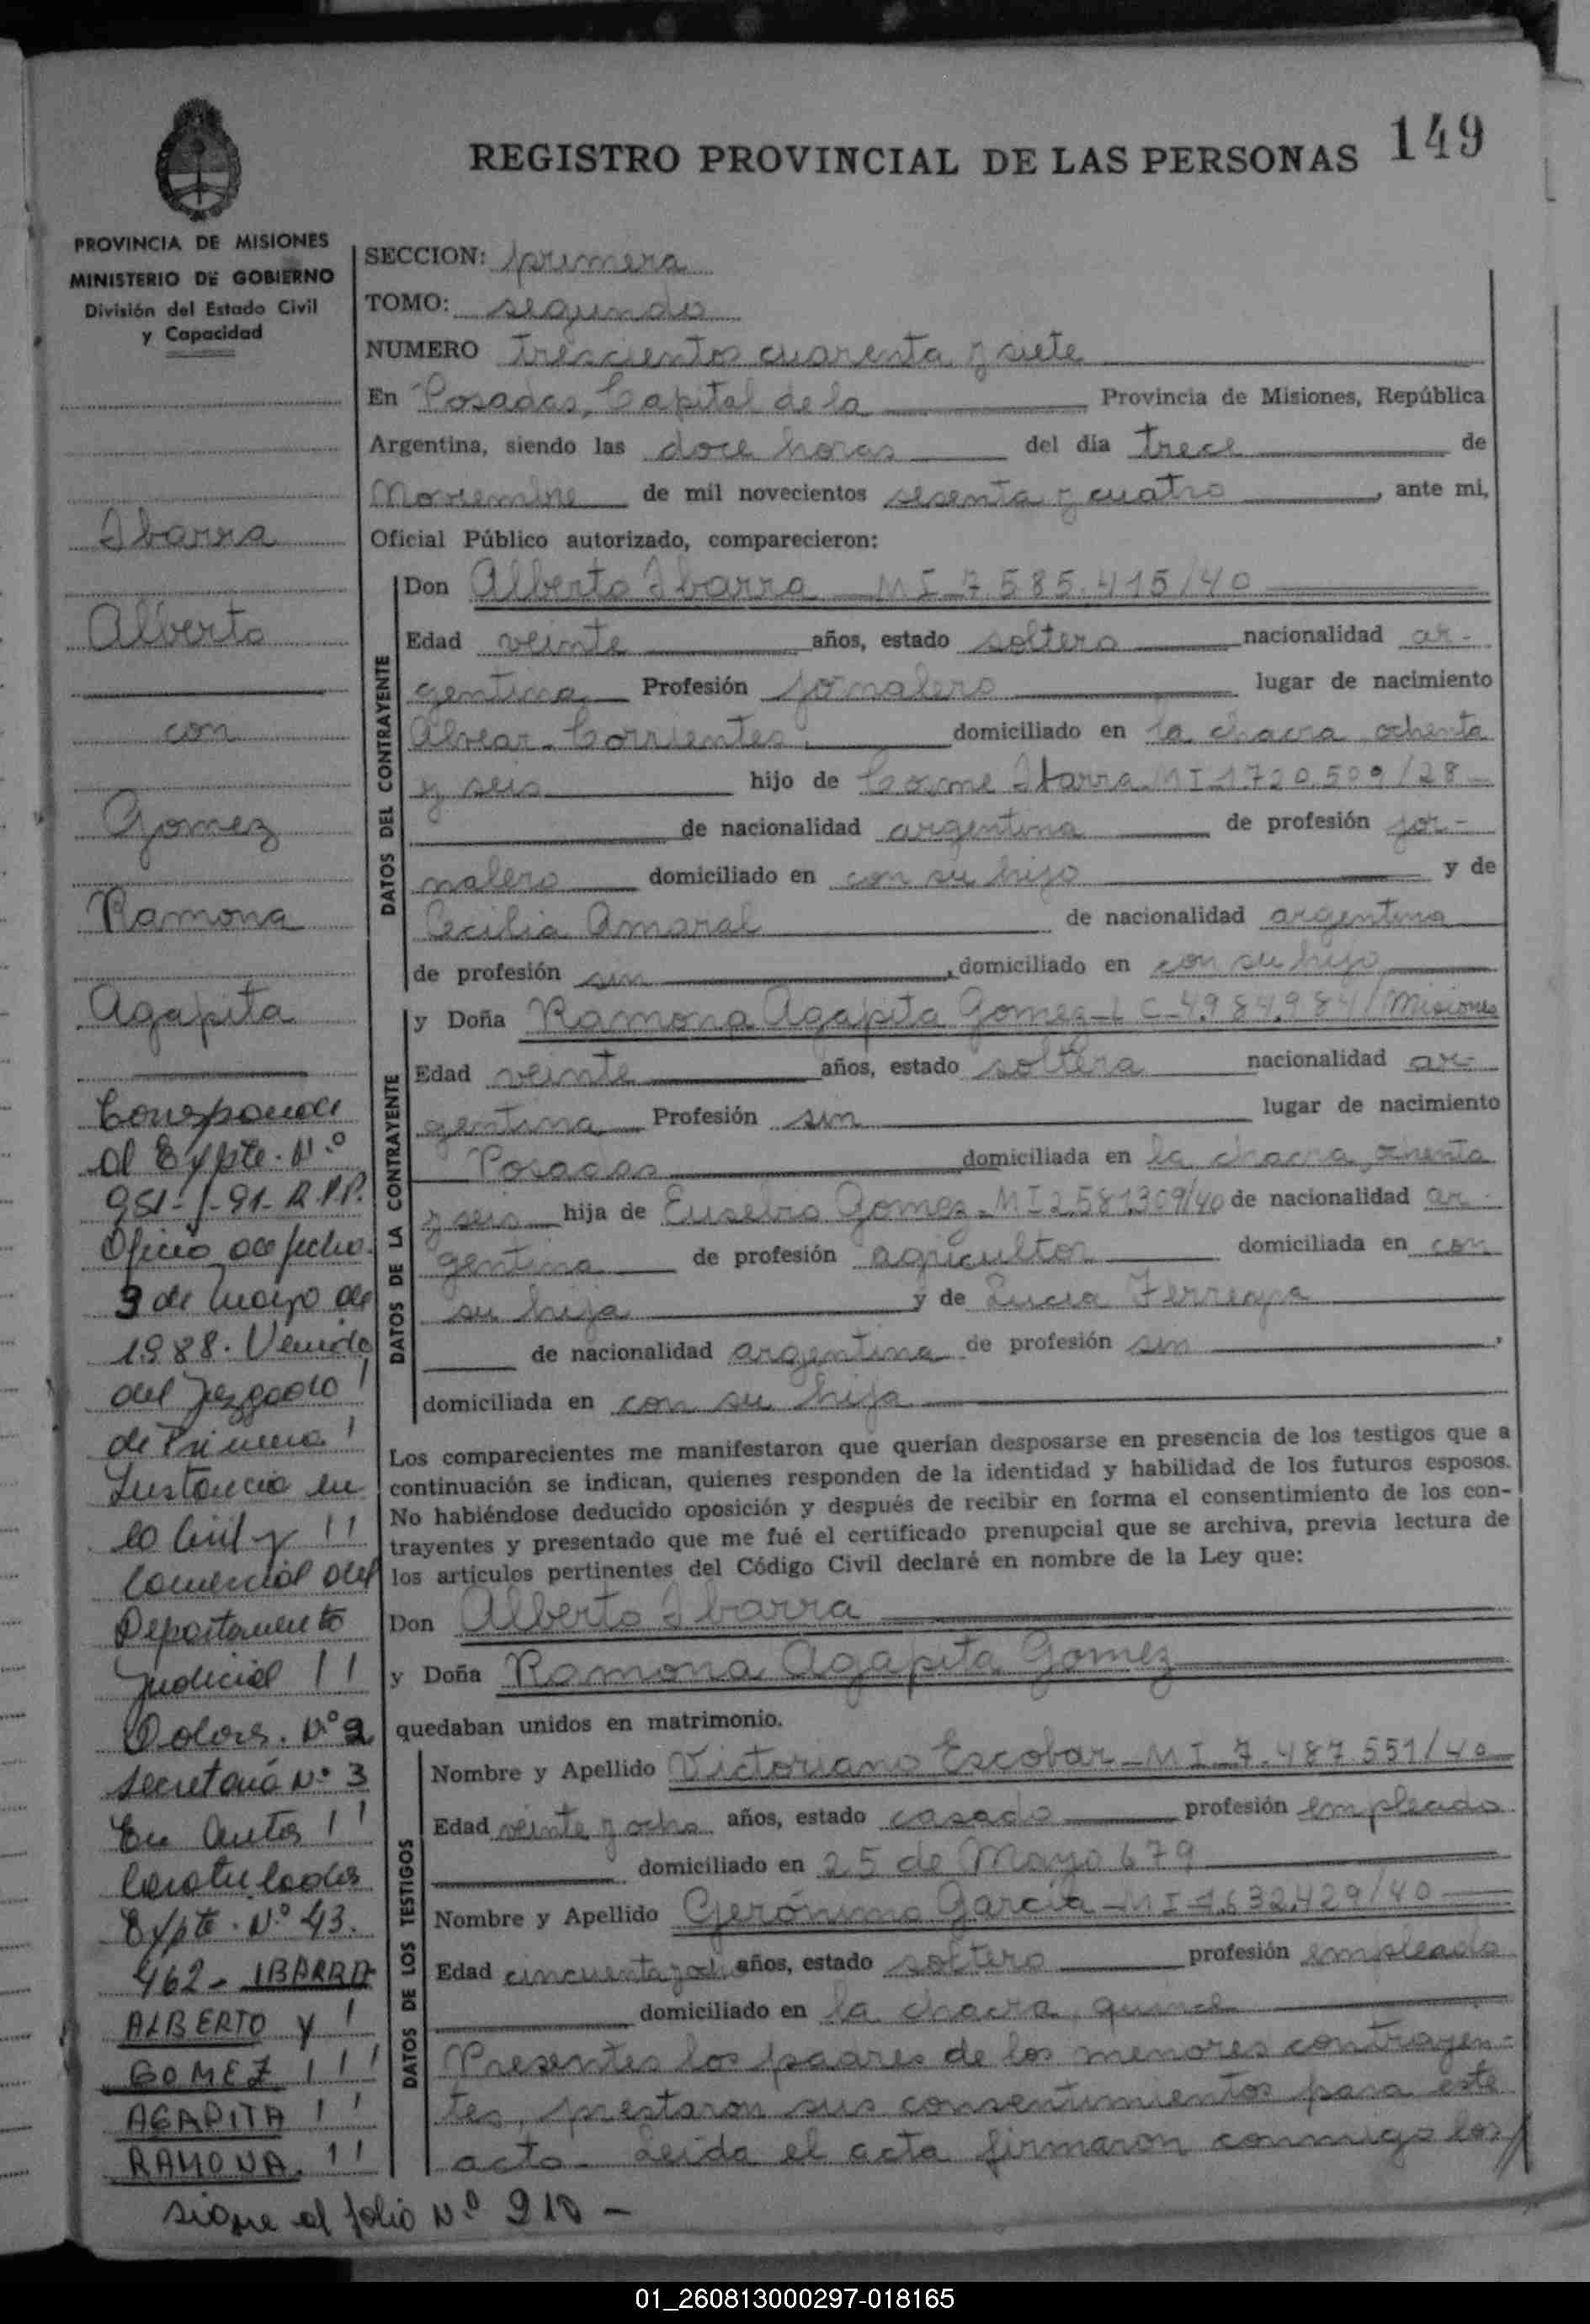 149
REGISTRO PROVINCIAL DE LAS PERSONAS
PROVINCIA DE MISIONES
MINISTERIO DE GOBIERNO
División del Estado Civil
y Capacidad
Ibarra
Alberto
con
Gomez
Ramona
Agapita
Corresponde
al Expte. Nº
951-J-91-R.P.P.
Oficio de fecha
9 de Mayo de
1988. Venido
del Juzgado
de Primera
Instancia en
lo Civil y
Comercial del
Departamento
Judicial
Dolores. Nº 2
Secretaría Nº 3
En Autos
Caratulados
Expte. Nº 43.
462- IBARRA
ALBERTO y
GOMEZ
AGAPITA
RAMONA.
sigue al folio Nº 210 -
SECCION: primera
TOMO: segundo
NUMERO Trescientos cuarenta y siete
En Posadas, Capital de la Provincia de Misiones, República
Argentina, siendo las doce horas del día trece de
Noviembre de mil novecientos sesenta y cuatro, ante mi,
Oficial Público autorizado, comparecieron:
DATOS DEL CONTRAYENTE
Don Alberto Ibarra - MI - 7.585.415/40
Edad veinte años, estado soltero nacionalidad ar-
gentina Profesión jornalero lugar de nacimiento
Alvear - Corrientes domiciliado en la chacra ochenta
y seis hijo de Cosme Ibarra MI-1.720.509/28-
de nacionalidad argentina de profesión jor-
nalero domiciliado en con su hijo y de
Cecilia Amaral de nacionalidad argentina
de profesión sin, domiciliado en con su hijo
DATOS DE LA CONTRAYENTE
y Doña Ramona Agapita Gomez - L C - 4.984.984/Misiones
Edad veinte años, estado soltera nacionalidad ar-
gentina Profesión sin lugar de nacimiento
Posadas domiciliada en la chacra, ochenta
y seis hija de Eusebio Gomez - MI 2.581.309/40 de nacionalidad ar-
gentina de profesión agricultor domiciliada en con
su hija y de Lucia Ferreyra
de nacionalidad argentina de profesión sin,
domiciliada en con su hija
Los comparecientes me manifestaron que querían desposarse en presencia de los testigos que a
continuación se indican, quienes responden de la identidad y habilidad de los futuros esposos.
No habiéndose deducido oposición y después de recibir en forma el consentimiento de los con-
trayentes y presentado que me fué el certificado prenupcial que se archiva, previa lectura de
los artículos pertinentes del Código Civil declaré en nombre de la Ley que:
Don Alberto Ibarra
y Doña Ramona Agapita Gomez
quedaban unidos en matrimonio.
DATOS DE LOS TESTIGOS
Nombre y Apellido Victoriano Escobar - MI - 7.487.551/40
Edad veinte y ocho años, estado casado profesión empleado
domiciliado en 25 de Mayo 679
Nombre y Apellido Gerónimo García - MI - 1.632.429/40
Edad cincuenta y ocho años, estado soltero profesión empleado
domiciliado en la chacra, quince
Presentes los padres de los menores contrayen-
tes, prestaron sus consentimientos para este
acto - Leida el acta firmaron conmigo los
01_260813000297-018165